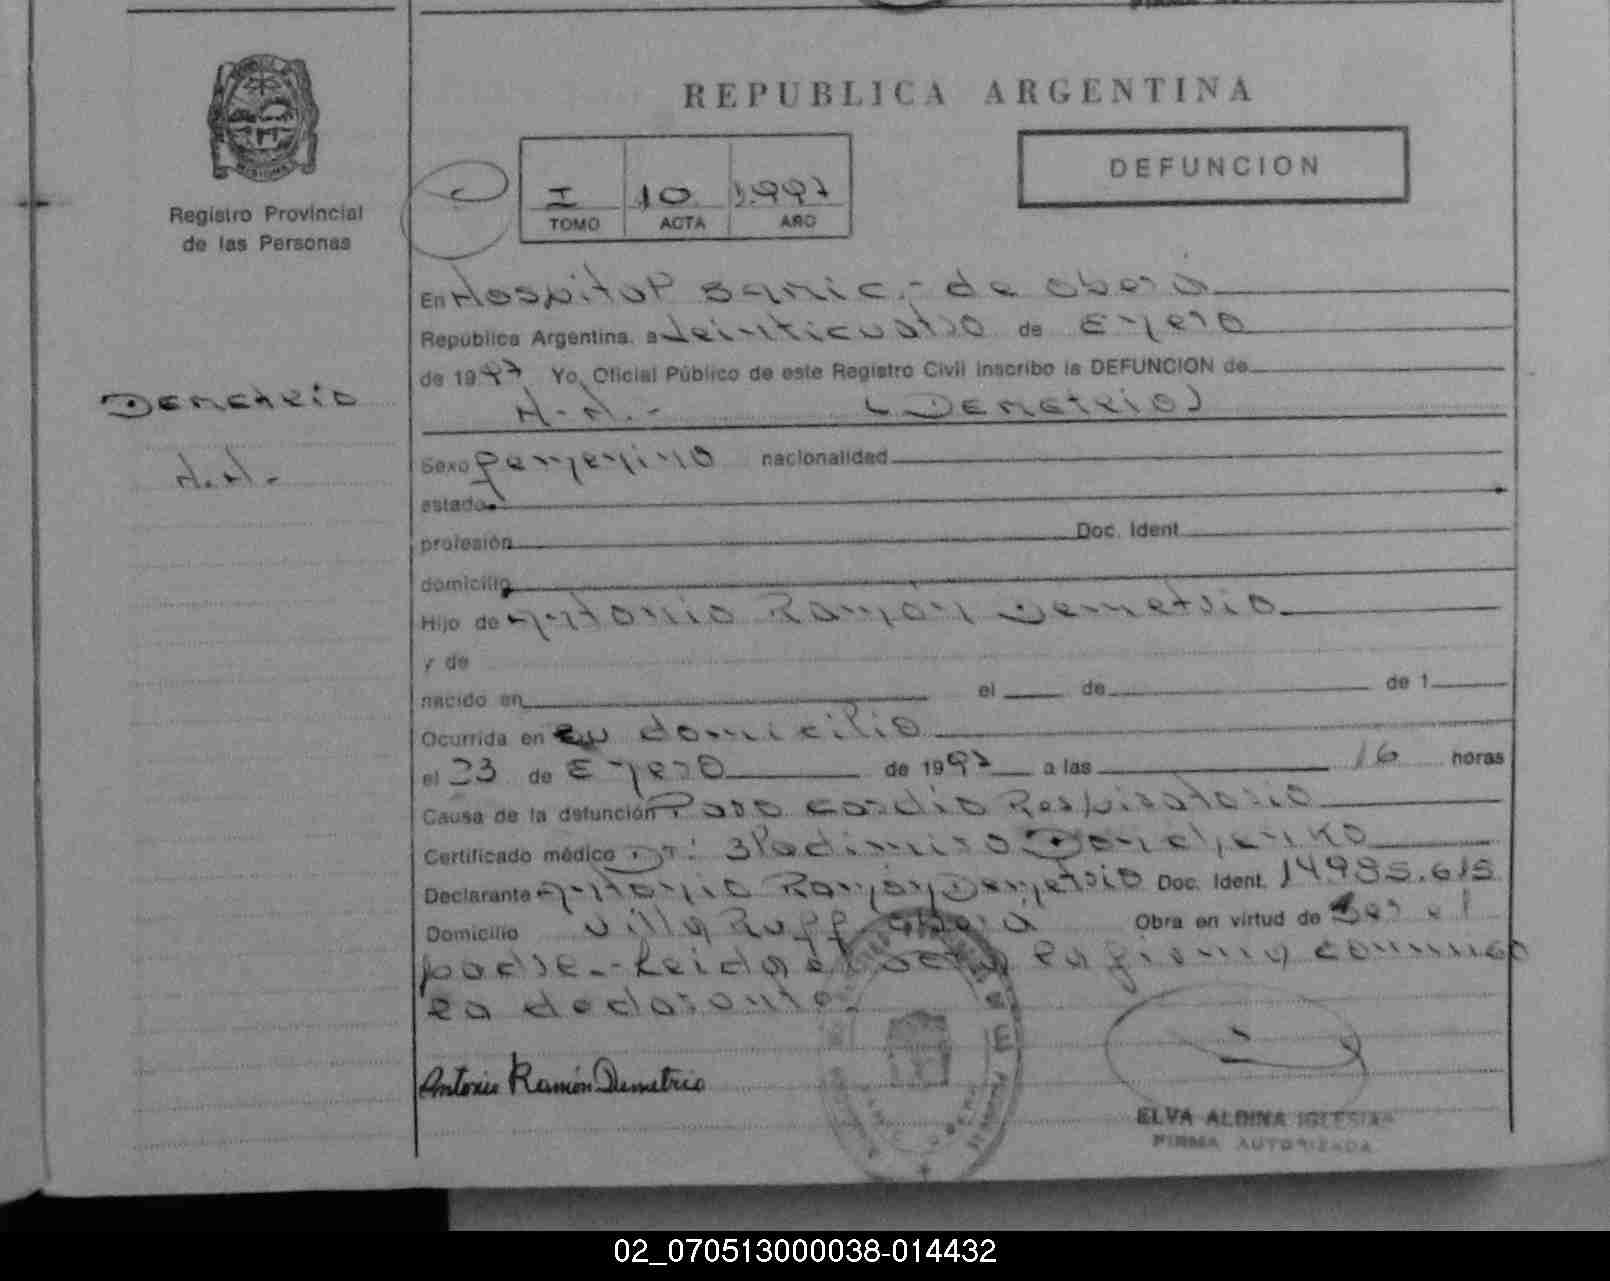 REPUBLICA ARGENTINA
DEFUNCION
I 10 1.997
TOMO ACTA AÑO
Registro Provincial
de las Personas
En Hospital de Oberá
República Argentina, a veinticuatro de Enero
de 1997 Yo, Oficial Público de este Registro Civil inscribo la DEFUNCION de
N.N.- (Demetrio)
Demetrio
N.N.-
Sexo femenino nacionalidad
estado
profesión Doc. Ident.
domicilio
Hijo de Antonio Ramón Demetrio
y de
nacido en el de de 1
Ocurrida en su domicilio
el 23 de Enero de 1997 a las 16 horas
Causa de la defunción Paro cardio Respiratorio
Certificado médico Dr:
Declarante Antonio Ramón Demetrio Doc. Ident. 14985.615
Domicilio Villa Ruff Oberá Obra en virtud de ser el
padre.- Leida el acta la firma conmigo
la declarante.
Antonio Ramón Demetrio
ELVA ALDINA IGLESIAS
FIRMA AUTORIZADA
02_070513000038-014432